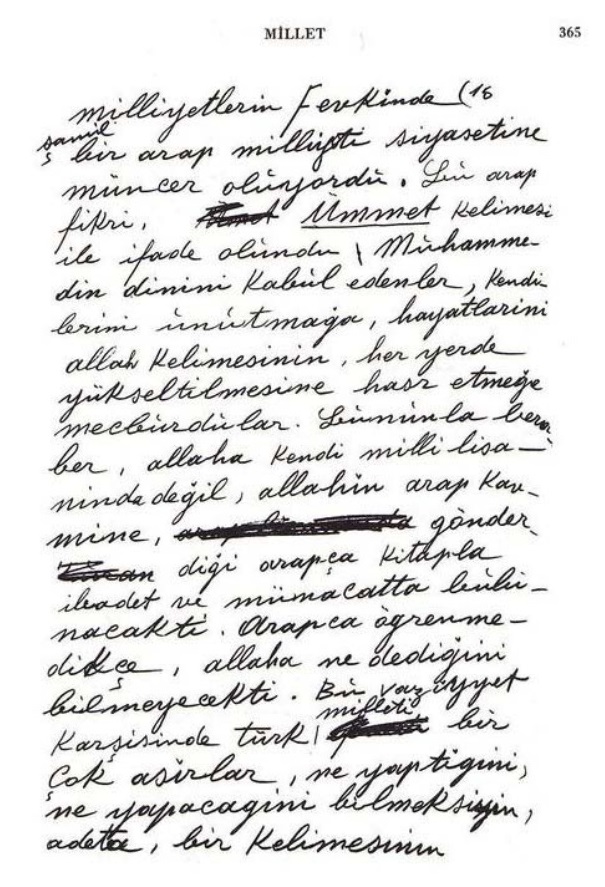 MİLLET 365
milliyetlerin fevkinde (18
şamil
bir arap milliyeti siyasetine
müncer olunyordu. Bu arap
fikri, Ümmet kelimesi
ile ifade olundu \ Muhamme-
din dinini kabul edenler, kendi-
lerini unutmağa, hayatlarini
allah kelimesinin, her yerde
yükseltilmesine hasr etmeğe
mecburdular. Bununla bera-
ber, allaha kendi milli lisa-
ninda değil, allahin arap kav-
mine, gönder-
diği arapça kitapla
ibadet ve münacatta bulu-
nacakti. Arapca ögrenme-
dikçe, allaha ne dediğini
bilmeyecekti. Bu vaziyyet
milleti
karşisinde türk | bir
çok asirlar, ne yaptigini,
ne yapacagini bilmeksizin,
adeta, bir kelimesinin